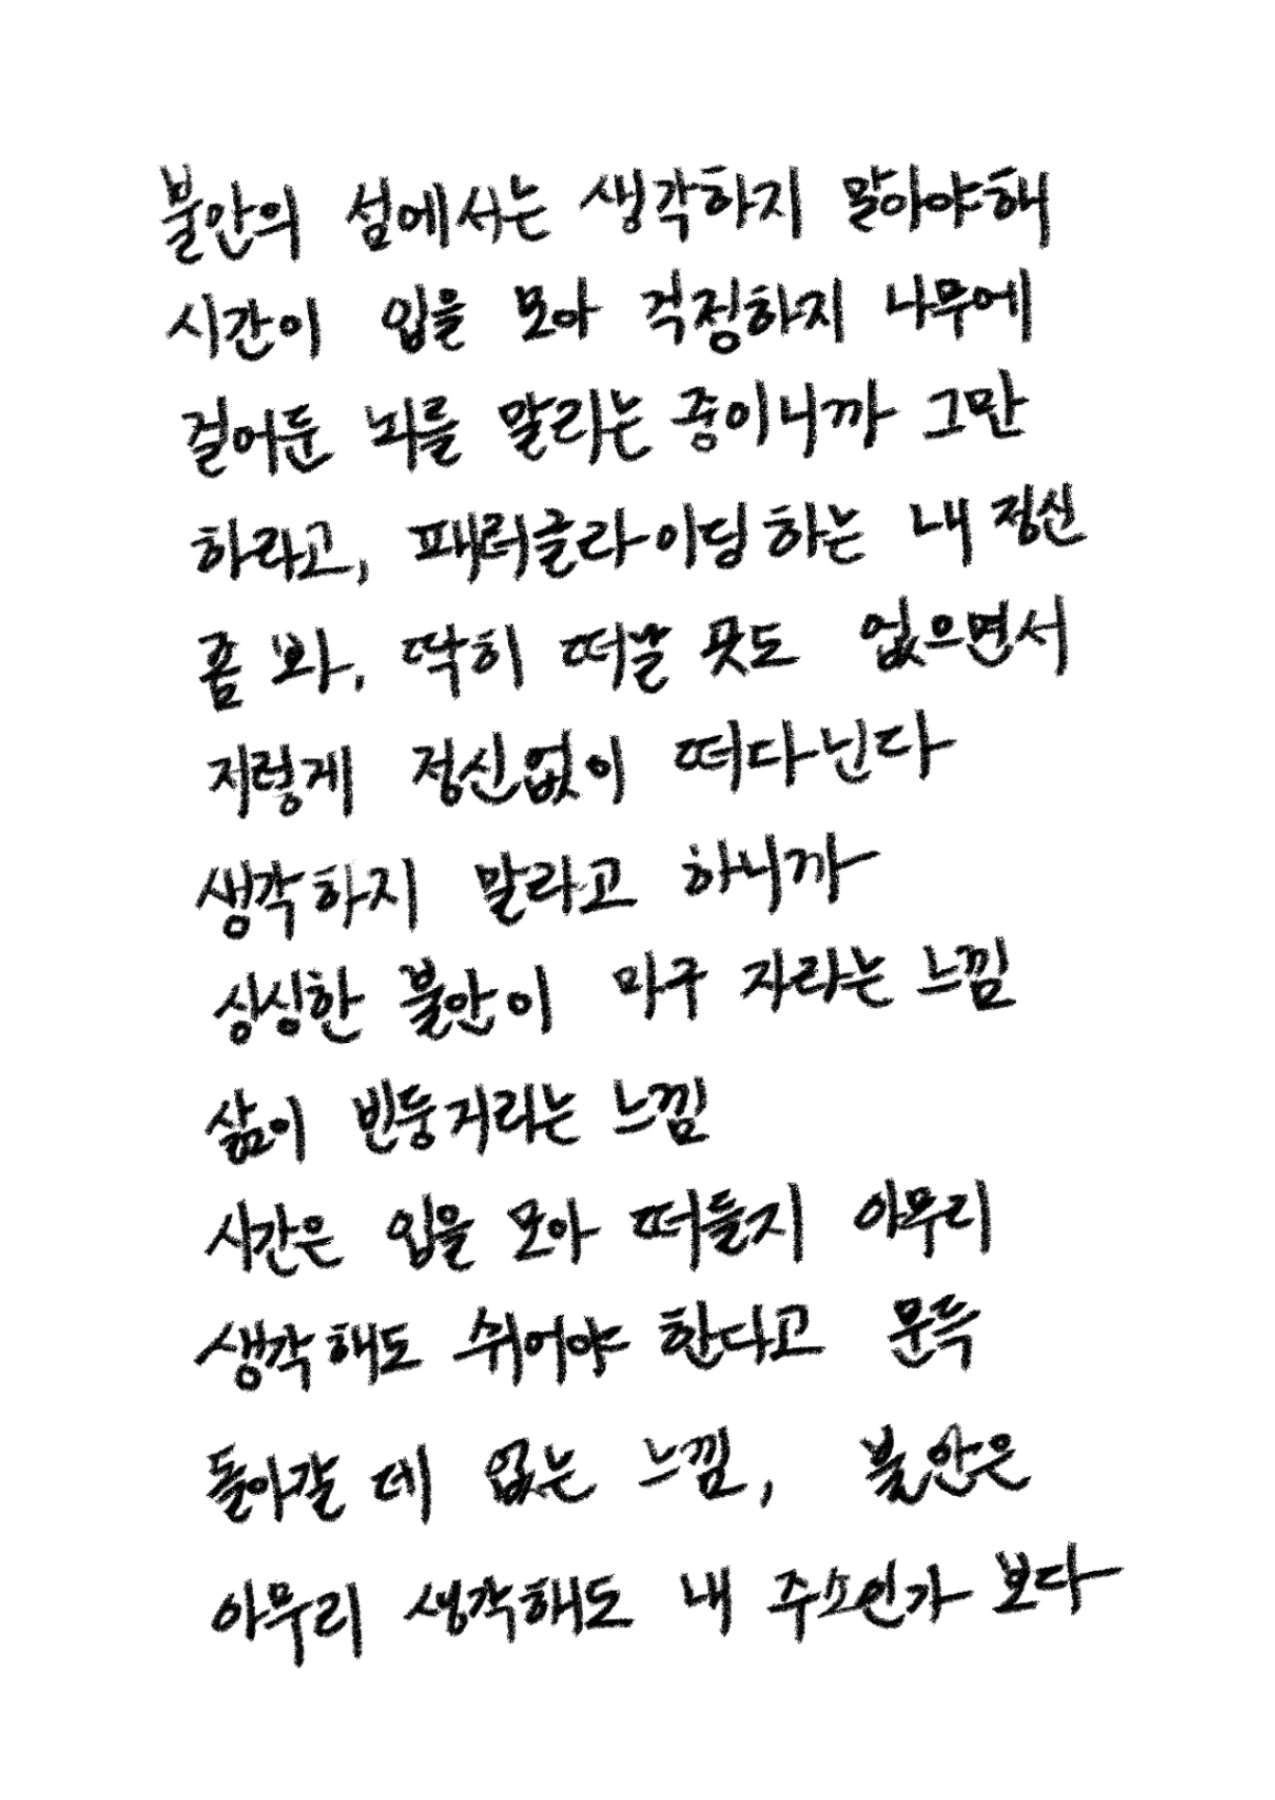 불안의 섬에서는 생각하지 말아야해
시간이 입을 모아 걱정하지 나무에
걸어둔 뇌를 말리는 중이니까 그만
하라고, 패러글라이딩하는 내 정신
좀 봐, 딱히 떠날 곳도 없으면서
저렇게 정신없이 떠다닌다
생각하지 말라고 하니까
싱싱한 불안이 마구 자라는 느낌
삶이 빈둥거리는 느낌
시간은 입을 모아 떠들지 아무리
생각해도 쉬어야 한다고 문득
돌아갈 데 없는 느낌, 불안은
아무리 생각해도 내 주소인가 보다